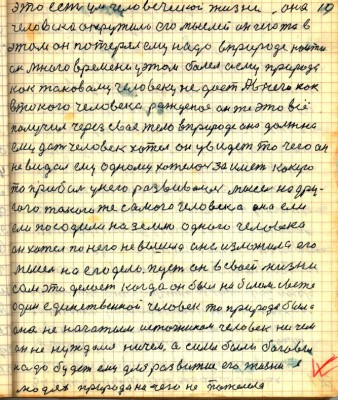 это есть ум человеческой жизни, она 10
человека окрутила его мыслей он чего то в
этом он потерял ему надо в природе найти
он много времени этом болел а ему природа
как таковому человеку не дает А в него как
в такого человека рожденое он же это всё
получил через свое тело в природе она должна
ему дать человек хотел он увидеть то чего он
не видал ему одному хотелось заиметь какую
то прибыл у него развивалась мысль на дру-
гого такого же самого человека она ели
ели посадила на землю одного человека
он хотел по него не вышло а не изложила его
мысль на его дело, пусть он в своей жизни
сам это делает когда он был на белом свете
один единственной человек то природа была
она не начатым источником человек ничем
он не нуждался ничем, а силы были боговы
надо будет ему для развития его жизни в
людях природа на чего не пожелела